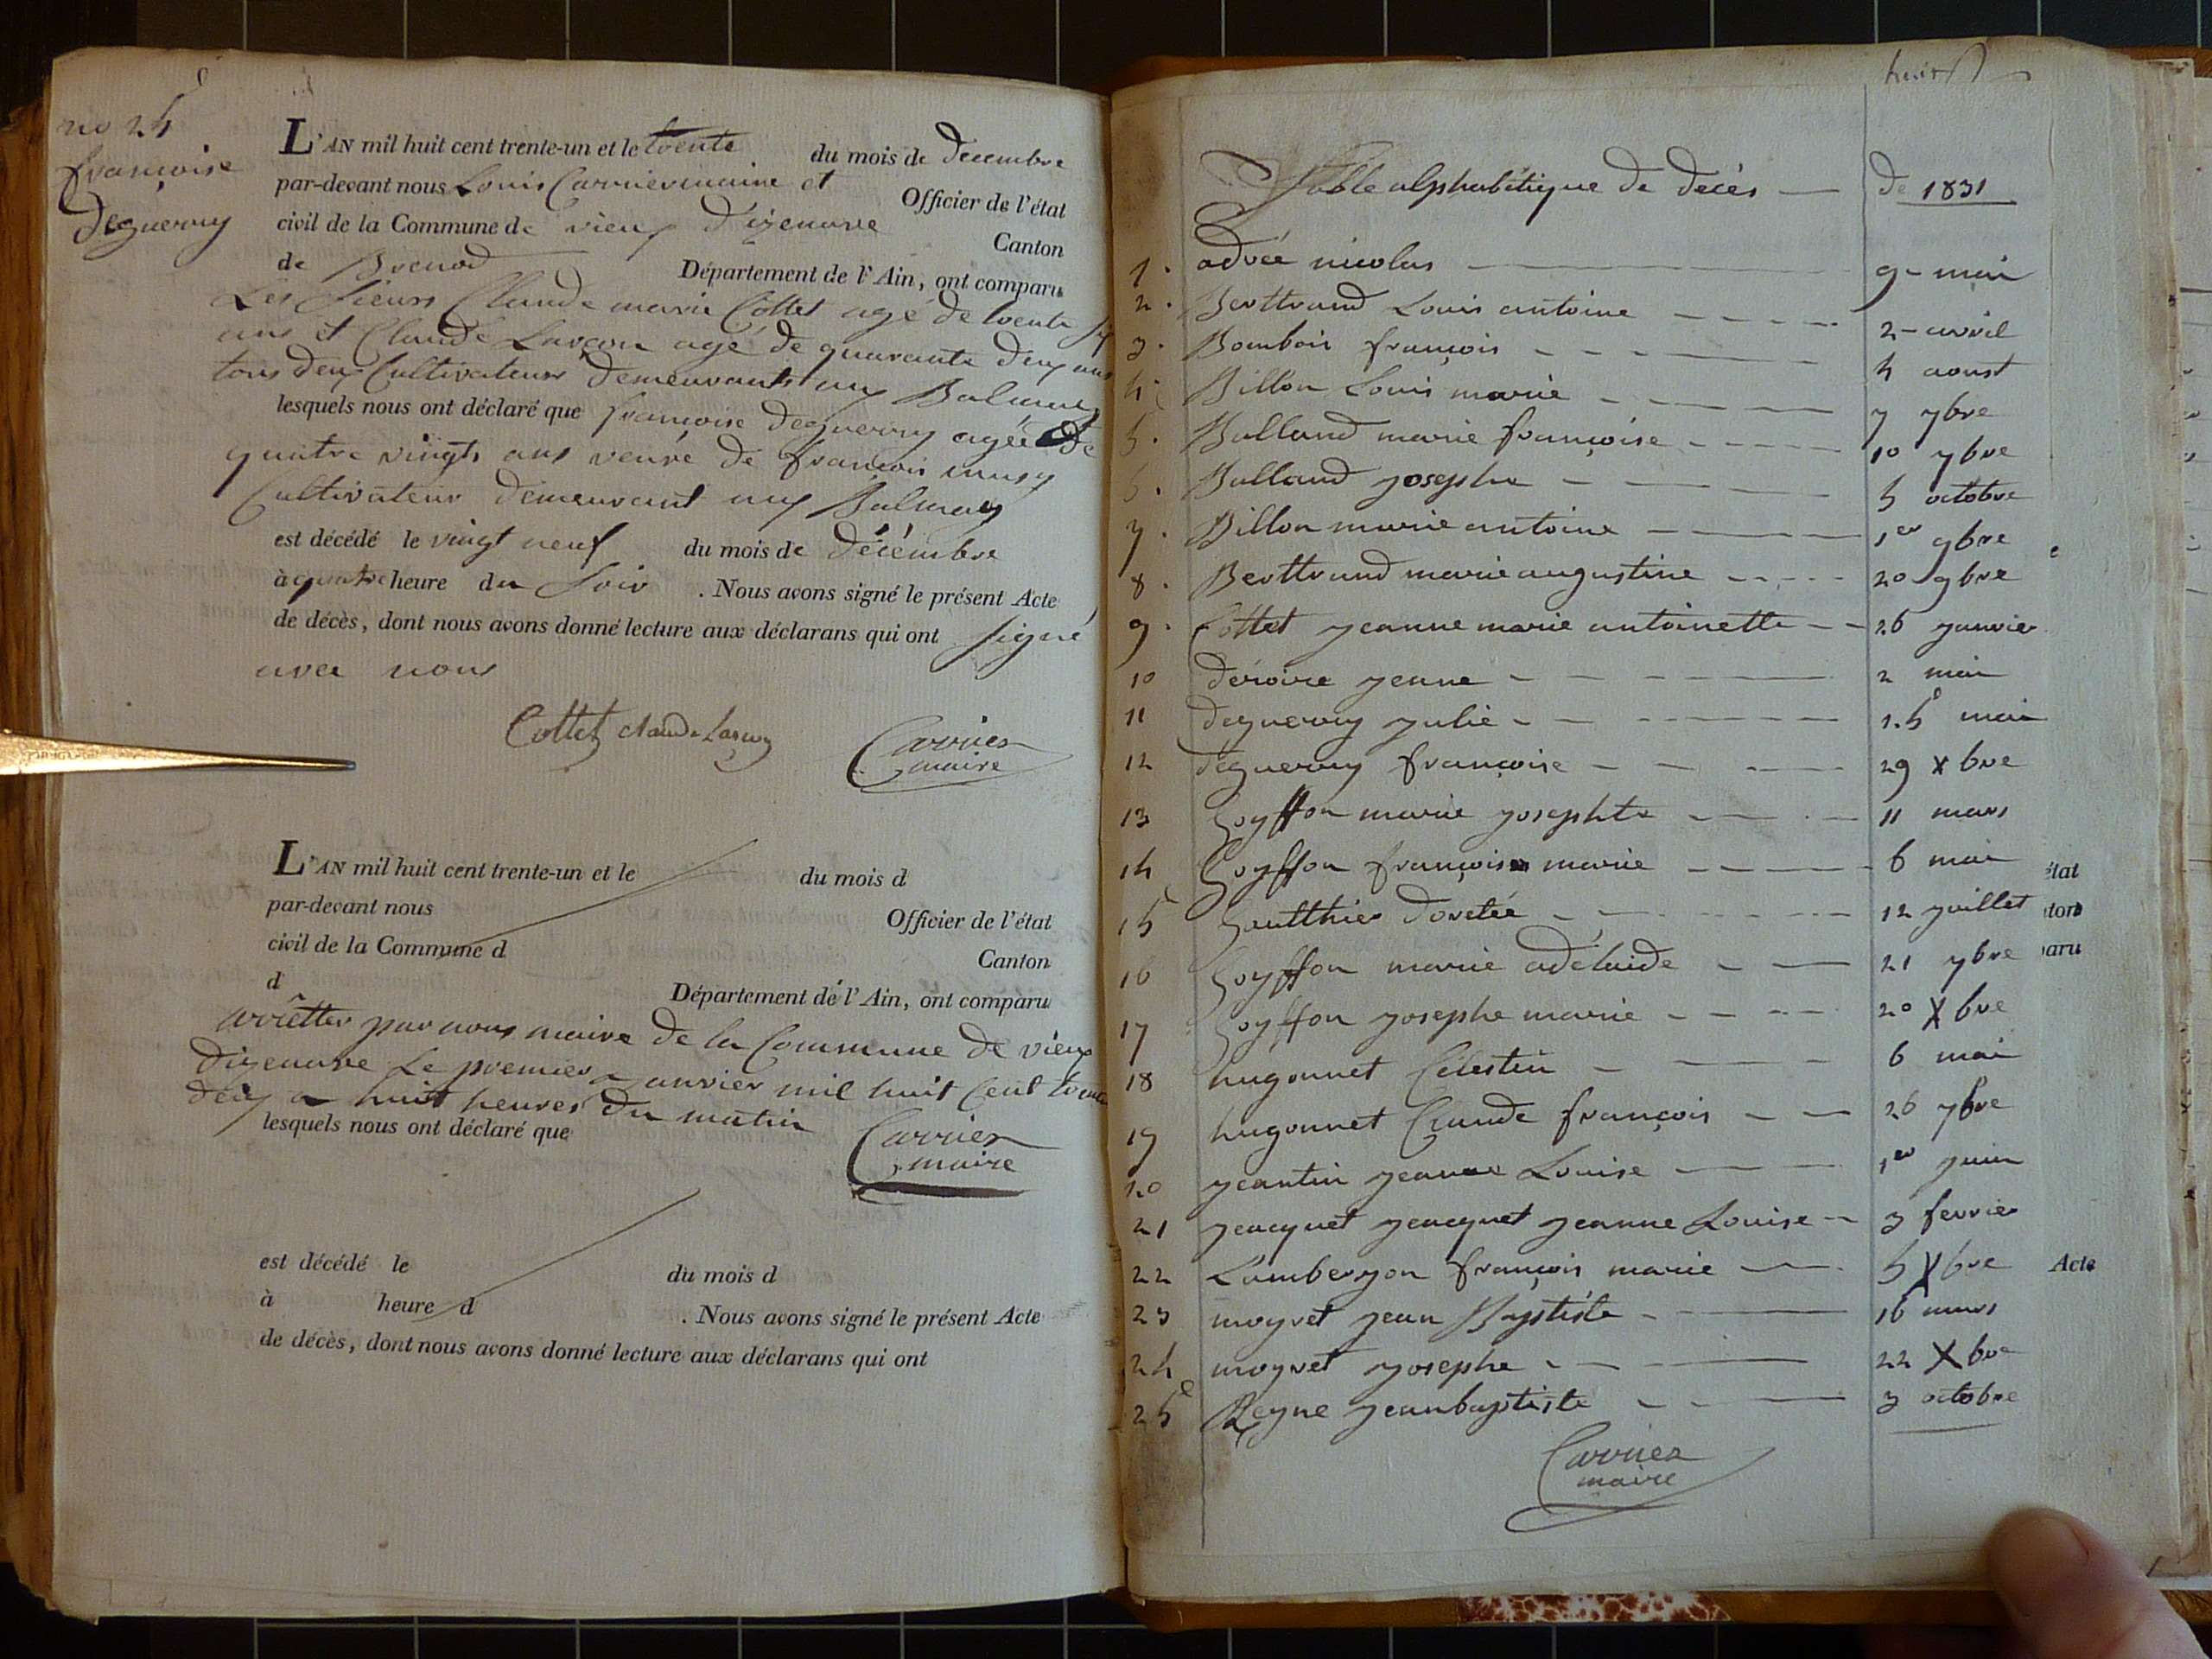 no 25
françoise
deguerry
L'AN mil huit cent trente-un et le trente du mois de decembre
par-devant nous Louis Carrier maire et Officier de l'état
civil de la Commune de vieux d'izenave Canton
de Brenod Département de l'Ain, ont comparu
Les sieurs Claude marie Cottet agé de trente six
ans et Claude Larçon agé de quarante deux ans
tous deux Cultivateurs demeurants aux Balmay
lesquels nous ont déclaré que françoise deguerry agée de
quatre vingts ans veuve de françois musy
Cultivateur demeurant aux Balmay
est décédé le vingt neuf du mois de décembre
à quatre heure du soir . Nous avons signé le présent Acte
de décès, dont nous avons donné lecture aux déclarans qui ont signé
avec nous
Cottet claude Larçon Carrier
maire
L'AN mil huit cent trente-un et le du mois d
par-devant nous Officier de l'état
civil de la Commune d Canton
d Département de l'Ain, ont comparu
arrêtter par nous maire de la Commune de vieux
dizenave Le premier janvier mil huit Cent trente
deux a huit heures du matin
lesquels nous ont déclaré que
Carrier
maire
est décédé le du mois d
à heure d . Nous avons signé le présent Acte
de décès, dont nous avons donné lecture aux déclarans qui ont
huit
Table alphabétique de decés de 1831
1. adrée nicolas 9 mai
2. Berttrand Louis antoine 2 avril
3. Bomboir françois 4 aoust
4. Billon Louis marie 7 7bre
5. Balland marie françoise 10 7bre
6. Balland josephe 5 octobre
7. Billon marie antoine 1er 9bre
8. Berttrand marie augustine 20 9bre
9. Cottet jeanne marie antoinette 26 janvier
10 déroire jeanne 2 mai
11 deguerry julie 15 mai
12 deguerry françoise 29 Xbre
13 Goyffon marie josephte 11 mars
14 Goyffon françois marie 6 mai
15 Gautthier dorotée 12 juillet
16 Goyffon marie adélaide 21 7bre
17 Goyffon josephe marie 20 Xbre
18 hugonnet Célestin 6 mai
19 hugonnet Claude françois 26 7bre
20 jeantin jeanne Louise 1er juin
21 jeacquet jeacquet jeanne Louise 3 fevrier
22 Lamberjon françois marie 5 Xbre
23 moyret jean Baptiste 16 mars
24 moyret josephe 22 Xbre
25 Reyne jeanbaptiste 3 octobre
Carrier
maire
état
ton
paru
Acte